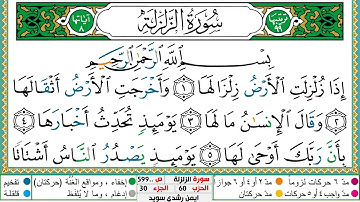 ترتيبها ٩٩
سُورَةُ الزَّلْزَلَةِ
آياتها ٨
بِسْمِ اللَّهِ الرَّحْمَٰنِ الرَّحِيمِ
إِذَا زُلْزِلَتِ ٱلْأَرْضُ زِلْزَالَهَا ۝١ وَأَخْرَجَتِ ٱلْأَرْضُ أَثْقَالَهَا
۝٢ وَقَالَ ٱلْإِنسَٰنُ مَا لَهَا ۝٣ يَوْمَئِذٍ تُحَدِّثُ أَخْبَارَهَا ۝٤
بِأَنَّ رَبَّكَ أَوْحَىٰ لَهَا ۝٥ يَوْمَئِذٍ يَصْدُرُ ٱلنَّاسُ أَشْتَاتًا
مد ٦ حركات لزوماً مد ٢ أو ٤ أو ٦ جوازاً
إخفاء، ومواقع الغنّة (حركتان) تفخيم
مد واجب ٤ أو ٥ حركات مد حركتان
إدغام، وما لا يُلفظ قلقلة
سورة الزلزلة ص 599
الحزب 60 الجزء 30
ايمن رشدي سويد